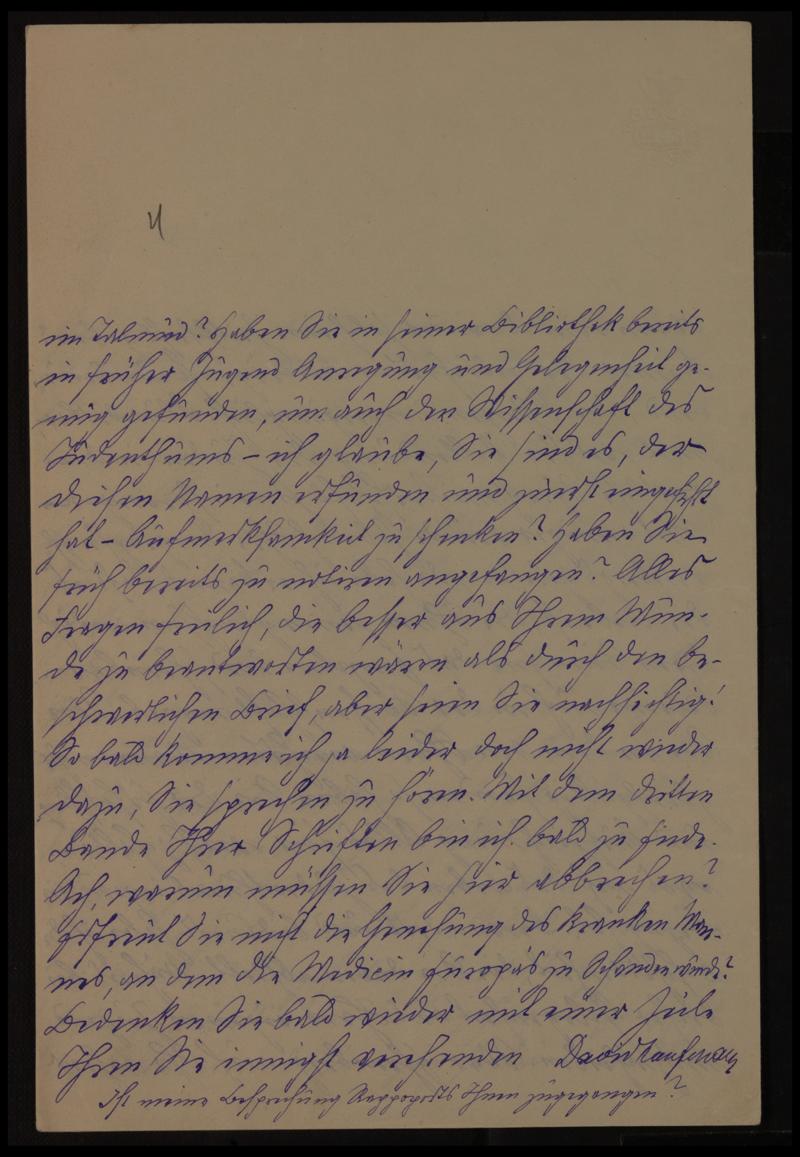 4
im Talmud? Haben Sie in seiner Bibliothek bereits
in früher Jugend Anregung und Gelegenheit ge-
nug gefunden, um auch der Wissenschaft des
Judenthums – ich glaube, Sie sind es, der
diesen Namen erfunden und zuerst eingeführt
hat – Aufmerksamkeit zu schenken? Haben Sie
früh bereits zu notiren angefangen? Alles
Fragen freilich, die besser aus Ihrem Mun-
de zu beantworten wären als durch den be-
schwerlichen Brief, aber seien Sie nachsichtig!
So bald komme ich ja leider doch nicht wieder
dazu, Sie sprechen zu hören. Mit dem dritten
Bande Ihrer Schriften bin ich bald zu Ende.
Ach, warum müssen Sie hier abbrechen?
Erfreut Sie nicht die Genesung des kranken Man-
nes, an dem die Medicin Europas zu Schanden wurde?
Bedenken Sie bald wieder mit einer Zeile
Ihren Sie innigst verehrenden David Kaufmann
Ist meine Besprechung Rappoports Ihnen zugegangen?